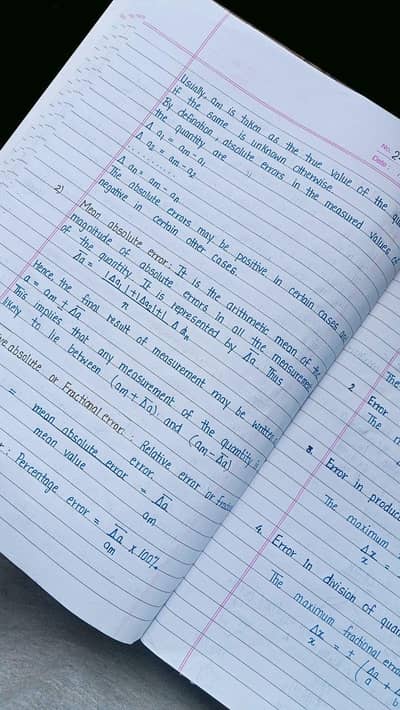 Usually, am is taken as the true value of the
if the same is unknown otherwise.
By defination, absolute errors in the measured values of
the quantity are "
Δ a₁ = am - a₁
Δ a₂ = am - a₂
..........
Δ an = am - an
The absolute errors may be positive in certain cases
negative in certain other cases.
2) Mean absolute error: It is the arithmetic mean of the
magnitude of absolute errors in all the
of the quantity. It is represented by Δ̅a̅. Thus
Δ̅a̅ = |Δa₁|+|Δa₂|+|Δ an
n
Hence the final result of measurement may be written
a = am ± Δ̅a̅.
This implies that any measurement of the quantity is
likely to lie between (am + Δ̅a̅) and (am - Δ̅a̅)
absolute or Fractional error: Relative error or
error.
= mean absolute error = Δ̅a̅
mean value am
Percentage error = Δ̅a̅ x 100%.
am
No. 2
Date
The
2. Error
The
3. Error in
The maximum
Δx =
x
4. Error In division of
The maximum fractional
Δx = ± (Δa + Δ
x a b